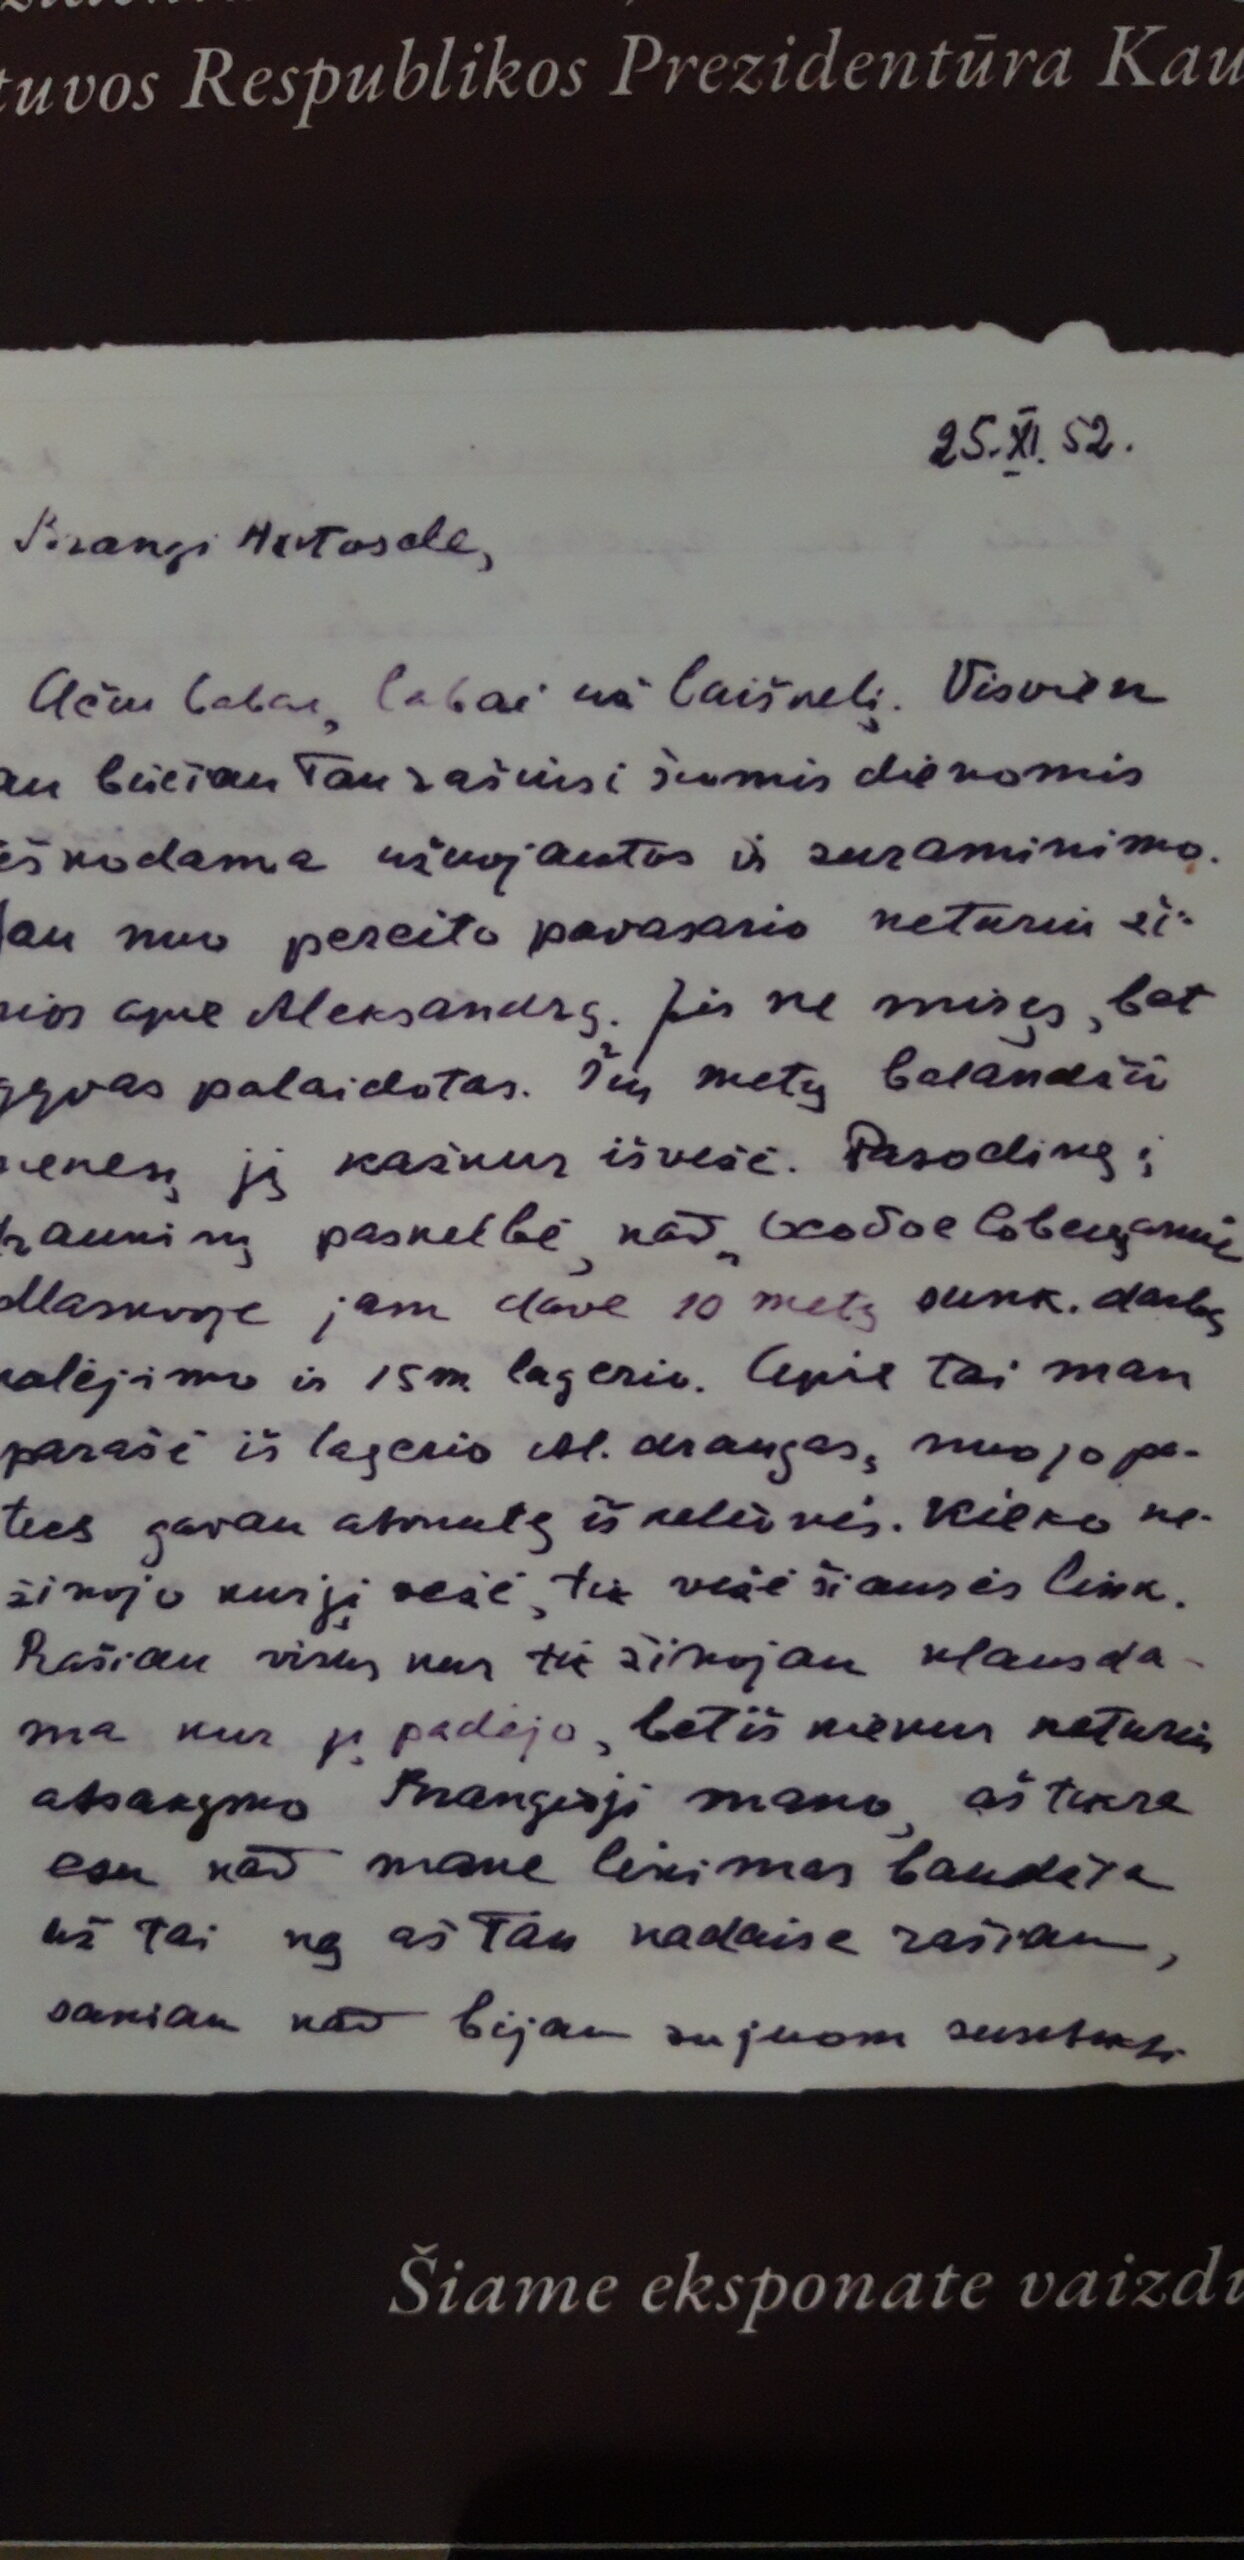 tuvos Respublikos Prezidentūra Kau
25.XI.52.
Brangi
Ačiu labai, labai už laišnelį. Visvien
au bučiau Tau rašiusi šiomis dienomis
eškodama užuojautos ir suraminimo.
Jau nuo pereito pavasario neturiu ži-
nios apie Aleksandrą. Jis ne miręs, bet
gyvas palaidotas. Šių metų balandžio
menesį jį kažkur išvežė. Pasodinę į
traukinį paskelbė, kad „Особое Совещание
Maskvoje jam davė 10 metų sunk. darbų
kalėjimo ir 15 m. lagerio. Apie tai man
parašė iš lagerio Al. draugas, nuo jo pa-
ties gavau atvirutę iš kelionės. Kieko ne-
žinojo kur jį vežė, tik vežė šiaurės link.
Rašiau visur kur tik žinojau klausda-
ma kur jį padėjo, bet iš niekur neturiu
atsakymo Brangioji mano, aš tikra
esu kad mane likimas baudžia
už tai ką aš Tau kadaise rašiau,
sakiau kad bijau su juom susitikti
Šiame eksponate vaizdu